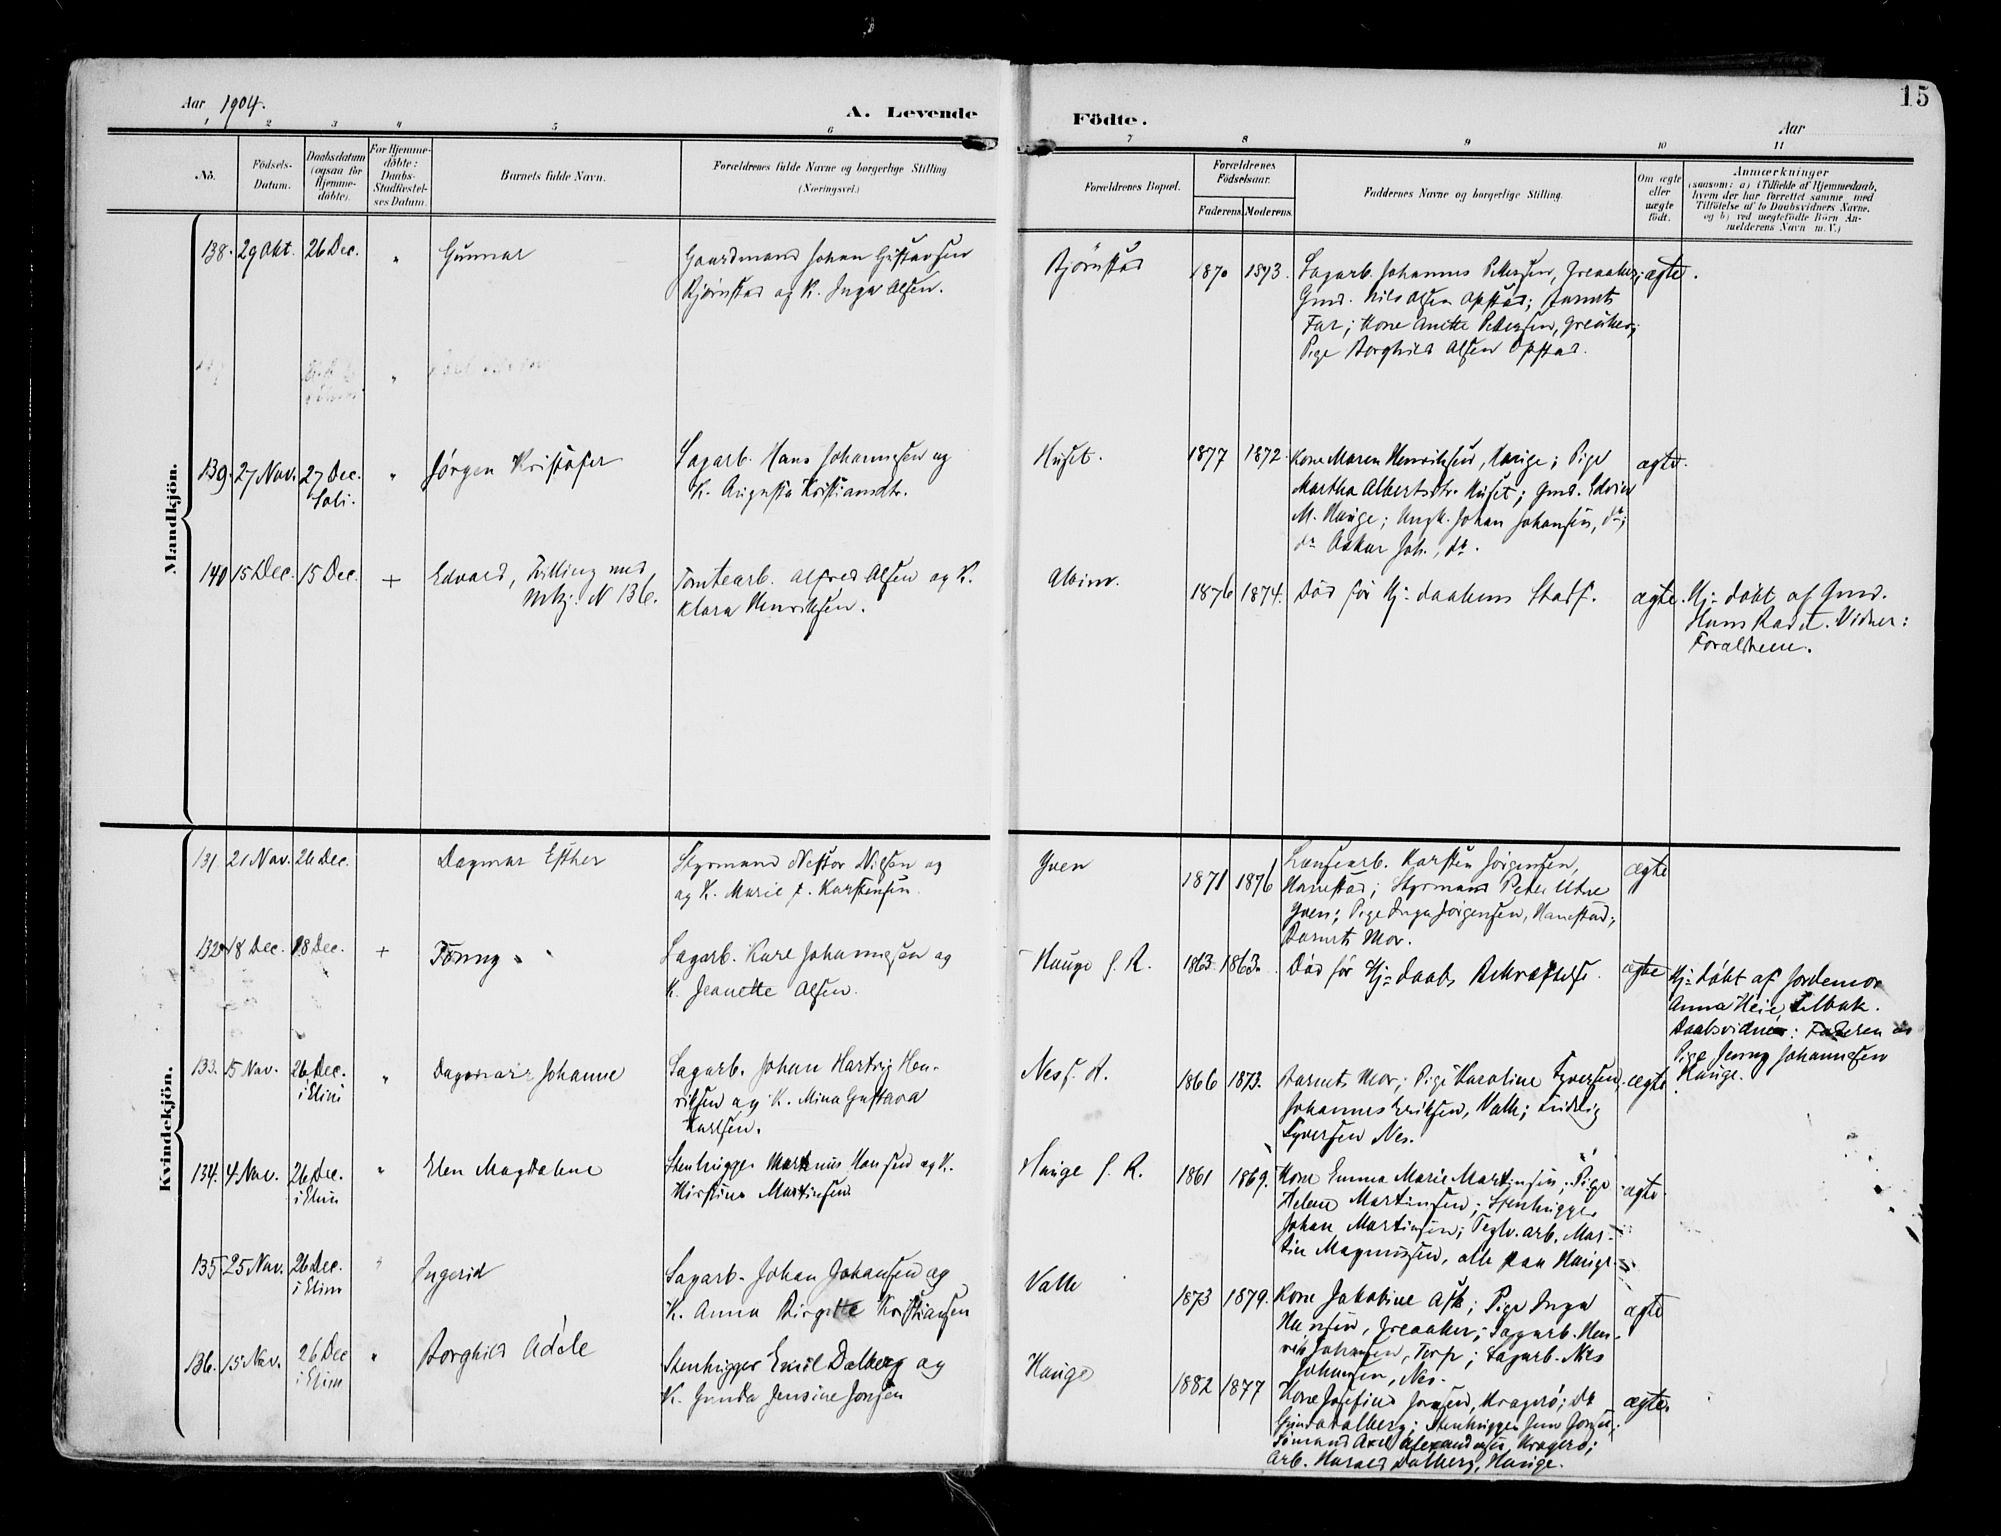 15
Aar 1904.
A. Levende
Födte.
Aar
1 2 3 4 5 6
7 8 9 10 11
No.
Födsels-
Datum.
Daabsdatum
(ogsaa for
Hjemme-
döbte).
For Hjemme-
döbte:
Daabs-
Stadfæstel-
ses Datum.
Barnets fulde Navn.
Forældrenes fulde Navne og borgerlige Stilling
(Næringsvei.)
Forældrenes Bopæl.
Forældrenes
Födselsaar.
Faderens. Moderens.
Faddernes Navne og borgerlige Stilling.
Om ægte
eller
uægte
födt.
Anmærkninger
(saasom: a) i Tilfælde af Hjemmedaab,
hvem der har forrettet samme, med
Tilföielse af to Daabsvidners Navne,
og b) ved uægtefödte Börn An-
melderens Navn m. V.)
Mandkjön.
138. 29 Okt. 26 Dec. " Gunnar
Gaardmand Johan Gustavsen
Bjørnstad og K. Inga Olsen.
Bjørnstad
1870 1873.
Sagarb. Johannes Pettersen, Greaaker;
Gmd. Nils Olsen Opstad; Barnets
Far; Kone Anette Pettersen, Greåker;
Pige Borghild Olsen Opstad.
ægte.
139. 27 Nov. 27 Dec. " Jørgen Kristofer
Soli.
Sagarb. Hans Johannesen og
K. Augusta Kristiansdtr.
Huset.
1877 1872.
Kone Maren Henriksen, Hauge; Pige
Martha Albertsdtr. Huset; Gmd. Edvin
M. Hauge; Ungk. Johan Johansen, do;
do Oskar Joh., do.
ægte.
140 15 Dec. 15 Dec. + Edvard, Tvilling med
Mkj. N 136.
Tomtearb. Alfred Olsen og K.
Klara Henriksen.
Albim.
1876 1874.
Død før Hj=daabens Stadf.
ægte.
Hj=døbt af Gmd.
Hans Vidner:
Forældrene.
Kvindekjön.
131. 21 Nov. 26 Dec. Dagmar Esther
Styrmand Nestor Nilsen og
og K. Marie f. Karstensen.
Yven
1871 1876
Lænsearb. Karsten Jørgensen,
Hanestad; Styrmand Peter Utne
Yven; Pige Inga Jørgensen, Hanestad;
Barnets Mor.
ægte
132 18 Dec. 18 Dec. + Fanny
Sagarb. Karl Johannesen og
K. Jeanette Olsen.
Hauge f. R.
1863 1863.
Død før Hj=daabs Bekræftelse.
ægte
Hj=døbt af Jordemor
Anna Heie, Selbak.
Daabsvidner: Faderen og
Pige Jenny Johannesen
Hauge.
133. 15 Nov. 26 Dec. " Dagmar Johanne
i Elim
Sagarb. Johan Hartvig Hen-
riksen og K. Mina Gustava
Karlsen.
Nes f. R.
1866 1873.
Barnets Mor; Pige Karoline Syversen,
Johannes Eriksen, Valle; Fredrig
Syversen Nes.
ægte
134. 4 Nov. 26 Dec. " Elen Magdalene
i Elim
Stenhugger Martinus Hansen og K.
Kirstine Martinsen.
Hauge f. R.
1861 1869.
Kone Emma Marie Martinsen; Pige
Helene Martinsen; Stenhugger
Johan Martinsen; Teglv.arb. Mar-
tin Magnussen, alle paa Hauge.
ægte
135 25 Nov. 26 Dec. " Ingerid
i Elim
Sagarb. Johan Johansen og
K. Anna Birgitte Kristiansen
Valle
1873 1879.
Kone Jakobine Ask; Pige Inga
Hansen, Greaaker; Sagarb. Hen-
rik Johansen, Torp; Sagarb. Nils
Johansen, Nes.
ægte
136. 15 Nov. 26 Dec " Borghild Adéle
i Elim
Stenhugger Emil Dalberg og
K. Gunda Jensine Jonsen
Hauge
1882 1877
Kone Josefine Jonsen, Kragerø; Do
Gunda Dalberg; Stenhugger Jonsen;
Sømand Axel Alexandersen, Kragerø;
Arb. Harald Dalberg, Hauge.
ægte.